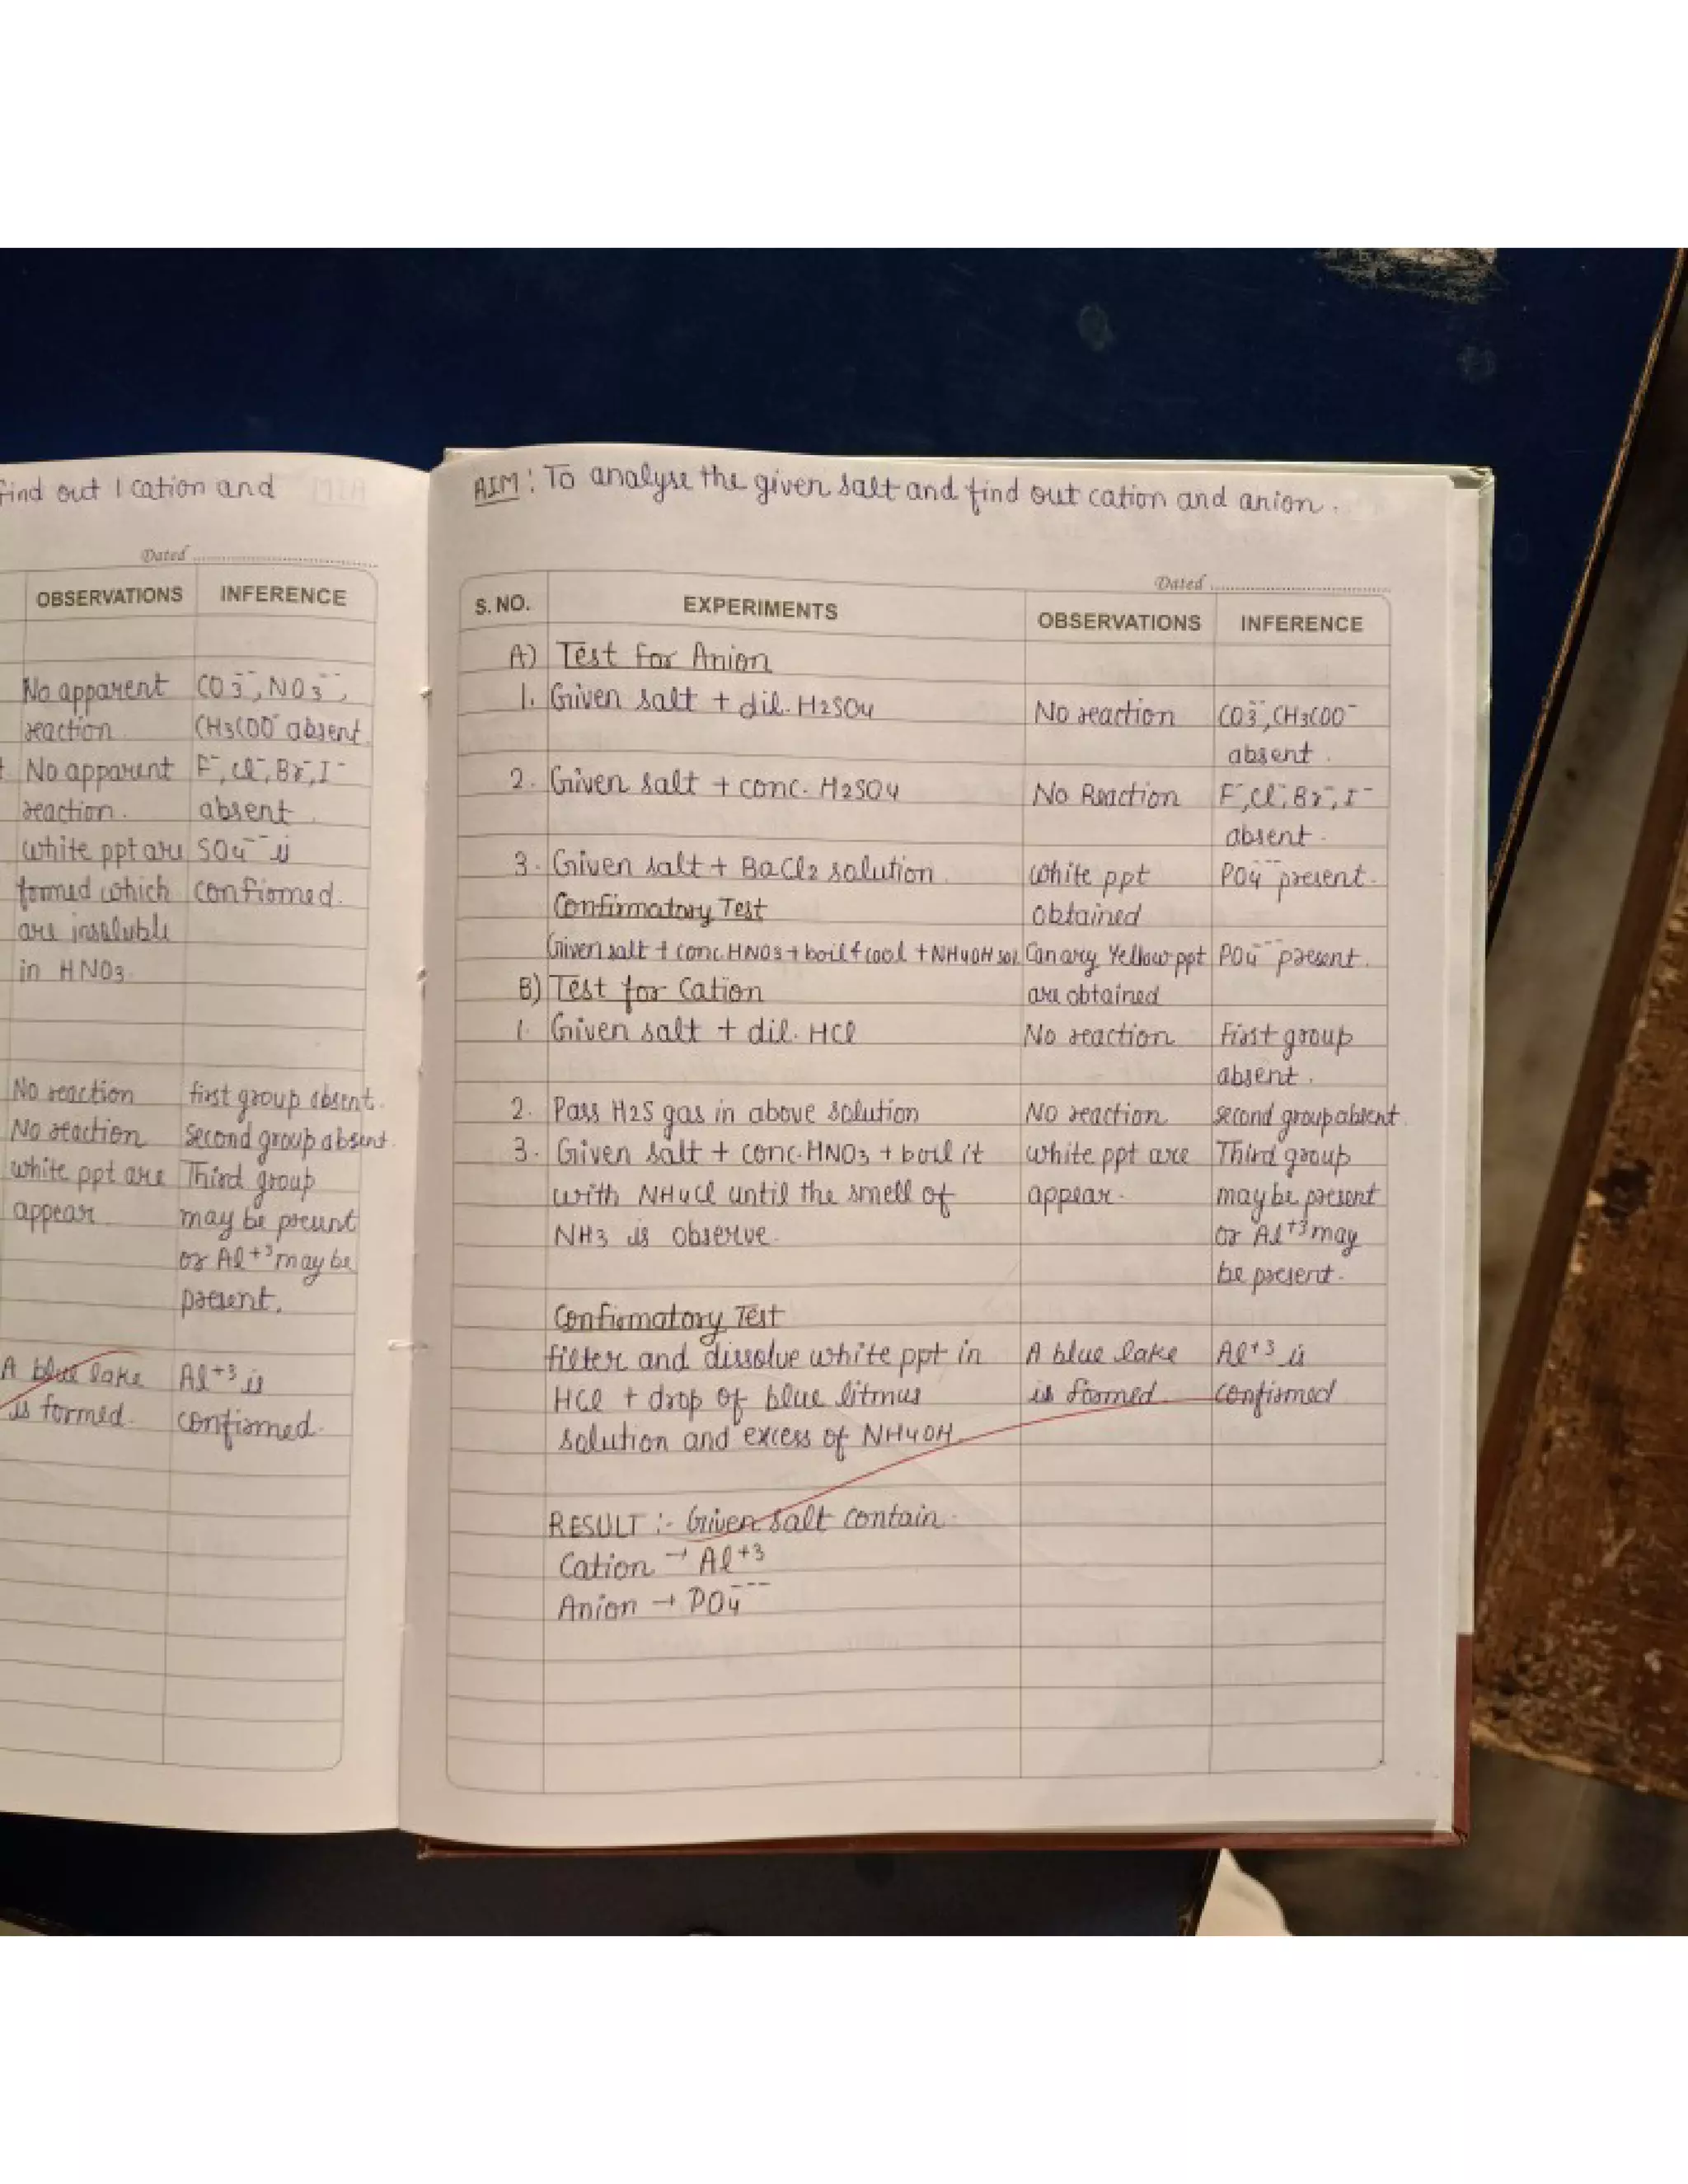 find out 1 cation and
Dated
OBSERVATIONS INFERENCE
No apparent CO3--, NO3--,
reaction. CH3COO- absent.
No apparent F-, Cl-, Br-, I-
reaction. absent.
white ppt are SO4-- is
formed which confirmed.
are insoluble
in HNO3.
No reaction first group absent.
No reaction second group absent.
white ppt are Third group
appear may be present
or Al+3 may be
present.
A blue lake Al+3 is
is formed. confirmed.
AIM: To analyse the given salt and find out cation and anion.
Dated
S. NO. EXPERIMENTS OBSERVATIONS INFERENCE
A) Test for Anion
1. Given salt + dil. H2SO4 No reaction CO3--, CH3COO-
absent.
2. Given salt + conc. H2SO4 No Reaction F-, Cl-, Br-, I-
absent.
3. Given salt + BaCl2 solution. white ppt PO4--- present.
Confirmatory Test obtained
Given salt + conc. HNO3 + boil + cool + NH4OH sol. Canary Yellow ppt PO4--- present.
B) Test for Cation are obtained
1. Given salt + dil. HCl No reaction First group
absent.
2. Pass H2S gas in above solution No reaction second group absent.
3. Given salt + conc. HNO3 + boil it white ppt are Third group
with NH4Cl until the smell of appear. may be present
NH3 is observe. or Al+3 may
be present.
Confirmatory Test
filter and dissolve white ppt in A blue lake Al+3 is
HCl + drop of blue litmus is formed confirmed
solution and excess of NH4OH
RESULT :- Given salt contain.
Cation → Al+3
Anion → PO4---